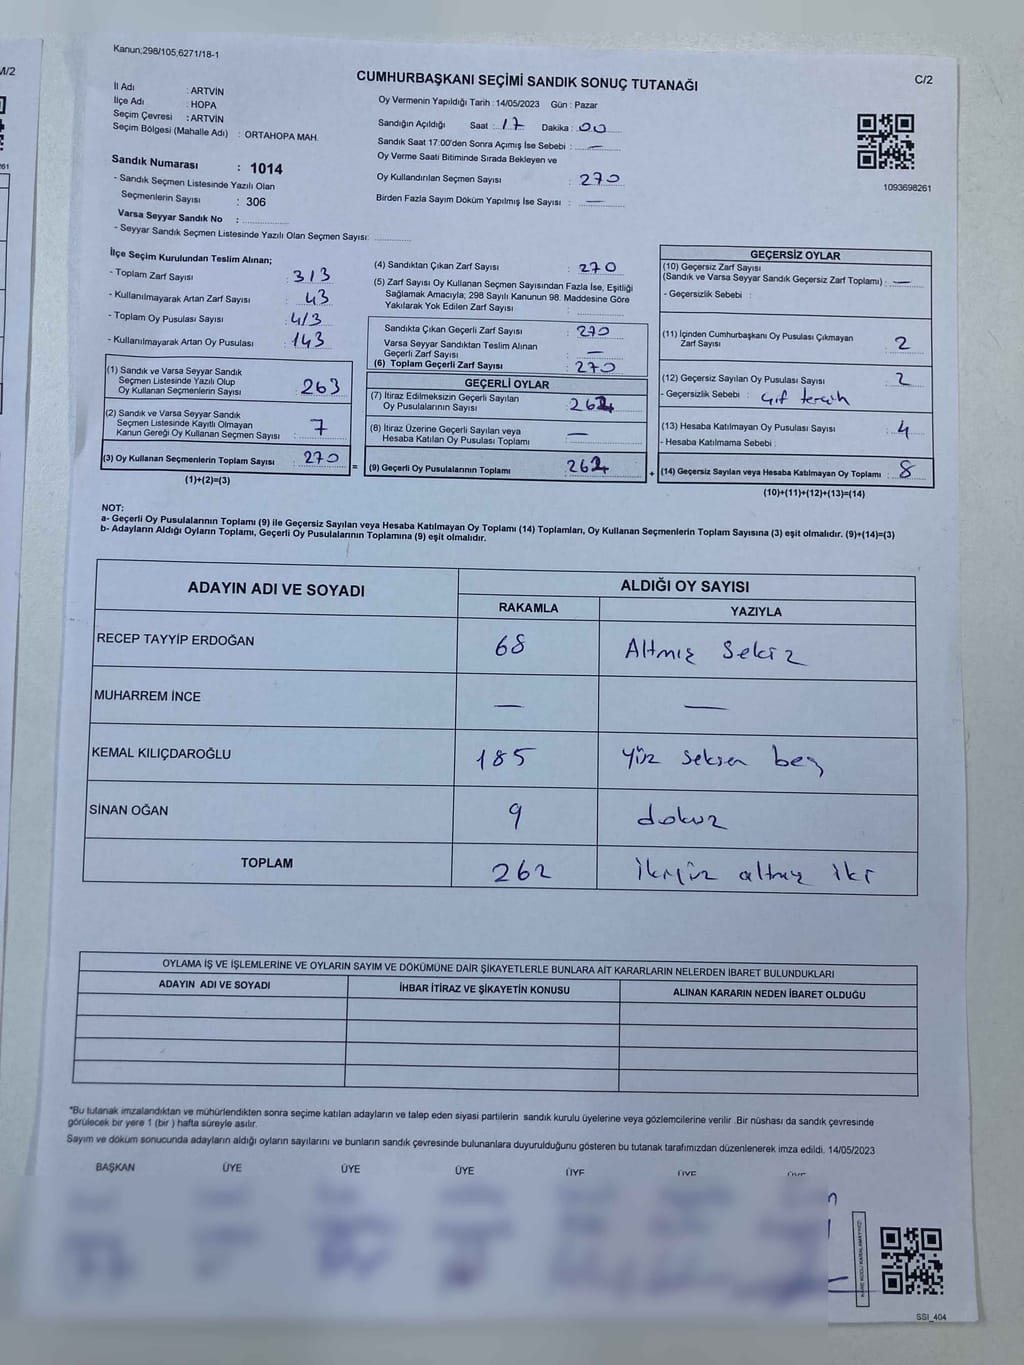 Kanun;298/105,6271/18-1
M/2
C/2
CUMHURBAŞKANI SEÇİMİ SANDIK SONUÇ TUTANAĞI
İl Adı : ARTVİN
İlçe Adı : HOPA
Seçim Çevresi : ARTVİN
Seçim Bölgesi (Mahalle Adı) : ORTAHOPA MAH.
Sandık Numarası : 1014
- Sandık Seçmen Listesinde Yazılı Olan
Seçmenlerin Sayısı : 306
Varsa Seyyar Sandık No :
- Seyyar Sandık Seçmen Listesinde Yazılı Olan Seçmen Sayısı:
Oy Vermenin Yapıldığı Tarih : 14/05/2023 Gün : Pazar
Sandığın Açıldığı Saat : 17 Dakika : 00
Sandık Saat 17:00'den Sonra Açımış İse Sebebi : —
Oy Verme Saati Bitiminde Sırada Bekleyen ve
Oy Kullandırılan Seçmen Sayısı : 270
Birden Fazla Sayım Döküm Yapılmış İse Sayısı : —
1093698261
İlçe Seçim Kurulundan Teslim Alınan;
- Toplam Zarf Sayısı : 313
- Kullanılmayarak Artan Zarf Sayısı : 43
- Toplam Oy Pusulası Sayısı : 413
- Kullanılmayarak Artan Oy Pusulası : 143
(1) Sandık ve Varsa Seyyar Sandık
Seçmen Listesinde Yazılı Olup
Oy Kullanan Seçmenlerin Sayısı : 263
(2) Sandık ve Varsa Seyyar Sandık
Seçmen Listesinde Kayıtlı Olmayan
Kanun Gereği Oy Kullanan Seçmen Sayısı : 7
(3) Oy Kullanan Seçmenlerin Toplam Sayısı : 270
(1)+(2)=(3)
=
(4) Sandıktan Çıkan Zarf Sayısı : 270
(5) Zarf Sayısı Oy Kullanan Seçmen Sayısından Fazla İse, Eşitliği
Sağlamak Amacıyla; 298 Sayılı Kanunun 98. Maddesine Göre
Yakılarak Yok Edilen Zarf Sayısı :
Sandıkta Çıkan Geçerli Zarf Sayısı : 270
Varsa Seyyar Sandıktan Teslim Alınan
Geçerli Zarf Sayısı : —
(6) Toplam Geçerli Zarf Sayısı : 270
GEÇERLİ OYLAR
(7) İtiraz Edilmeksizin Geçerli Sayılan
Oy Pusulalarının Sayısı : 262
(8) İtiraz Üzerine Geçerli Sayılan veya
Hesaba Katılan Oy Pusulası Toplamı : —
(9) Geçerli Oy Pusulalarının Toplamı : 262
+
GEÇERSİZ OYLAR
(10) Geçersiz Zarf Sayısı
(Sandık ve Varsa Seyyar Sandık Geçersiz Zarf Toplamı) : —
- Geçersizlik Sebebi :
(11) İçinden Cumhurbaşkanı Oy Pusulası Çıkmayan
Zarf Sayısı : 2
(12) Geçersiz Sayılan Oy Pusulası Sayısı : 2
- Geçersizlik Sebebi : Çif tercih
(13) Hesaba Katılmayan Oy Pusulası Sayısı : 4
- Hesaba Katılmama Sebebi :
(14) Geçersiz Sayılan veya Hesaba Katılmayan Oy Toplamı : 8
(10)+(11)+(12)+(13)=(14)
NOT:
a- Geçerli Oy Pusulalarının Toplamı (9) ile Geçersiz Sayılan veya Hesaba Katılmayan Oy Toplamı (14) Toplamları, Oy Kullanan Seçmenlerin Toplam Sayısına (3) eşit olmalıdır. (9)+(14)=(3)
b- Adayların Aldığı Oyların Toplamı, Geçerli Oy Pusulalarının Toplamına (9) eşit olmalıdır.
ADAYIN ADI VE SOYADI ALDIĞI OY SAYISI
RAKAMLA YAZIYLA
RECEP TAYYİP ERDOĞAN 68 Altmış Sekiz
MUHARREM İNCE — —
KEMAL KILIÇDAROĞLU 185 Yüz seksen beş
SİNAN OĞAN 9 dokuz
TOPLAM 262 ikiyüz altmış iki
OYLAMA İŞ VE İŞLEMLERİNE VE OYLARIN SAYIM VE DÖKÜMÜNE DAİR ŞİKAYETLERLE BUNLARA AİT KARARLARIN NELERDEN İBARET BULUNDUKLARI
ADAYIN ADI VE SOYADI İHBAR İTİRAZ VE ŞİKAYETİN KONUSU ALINAN KARARIN NEDEN İBARET OLDUĞU
"Bu tutanak imzalandıktan ve mühürlendikten sonra seçime katılan adayların ve talep eden siyasi partilerin sandık kurulu üyelerine veya gözlemcilerine verilir. Bir nüshası da sandık çevresinde
görülecek bir yere 1 (bir ) hafta süreyle asılır.
Sayım ve döküm sonucunda adayların aldığı oyların sayılarını ve bunların sandık çevresinde bulunanlara duyurulduğunu gösteren bu tutanak tarafımızdan düzenlenerek imza edildi. 14/05/2023
BAŞKAN ÜYE ÜYE ÜYE ÜYE ÜYE ÜYE
SSI_404